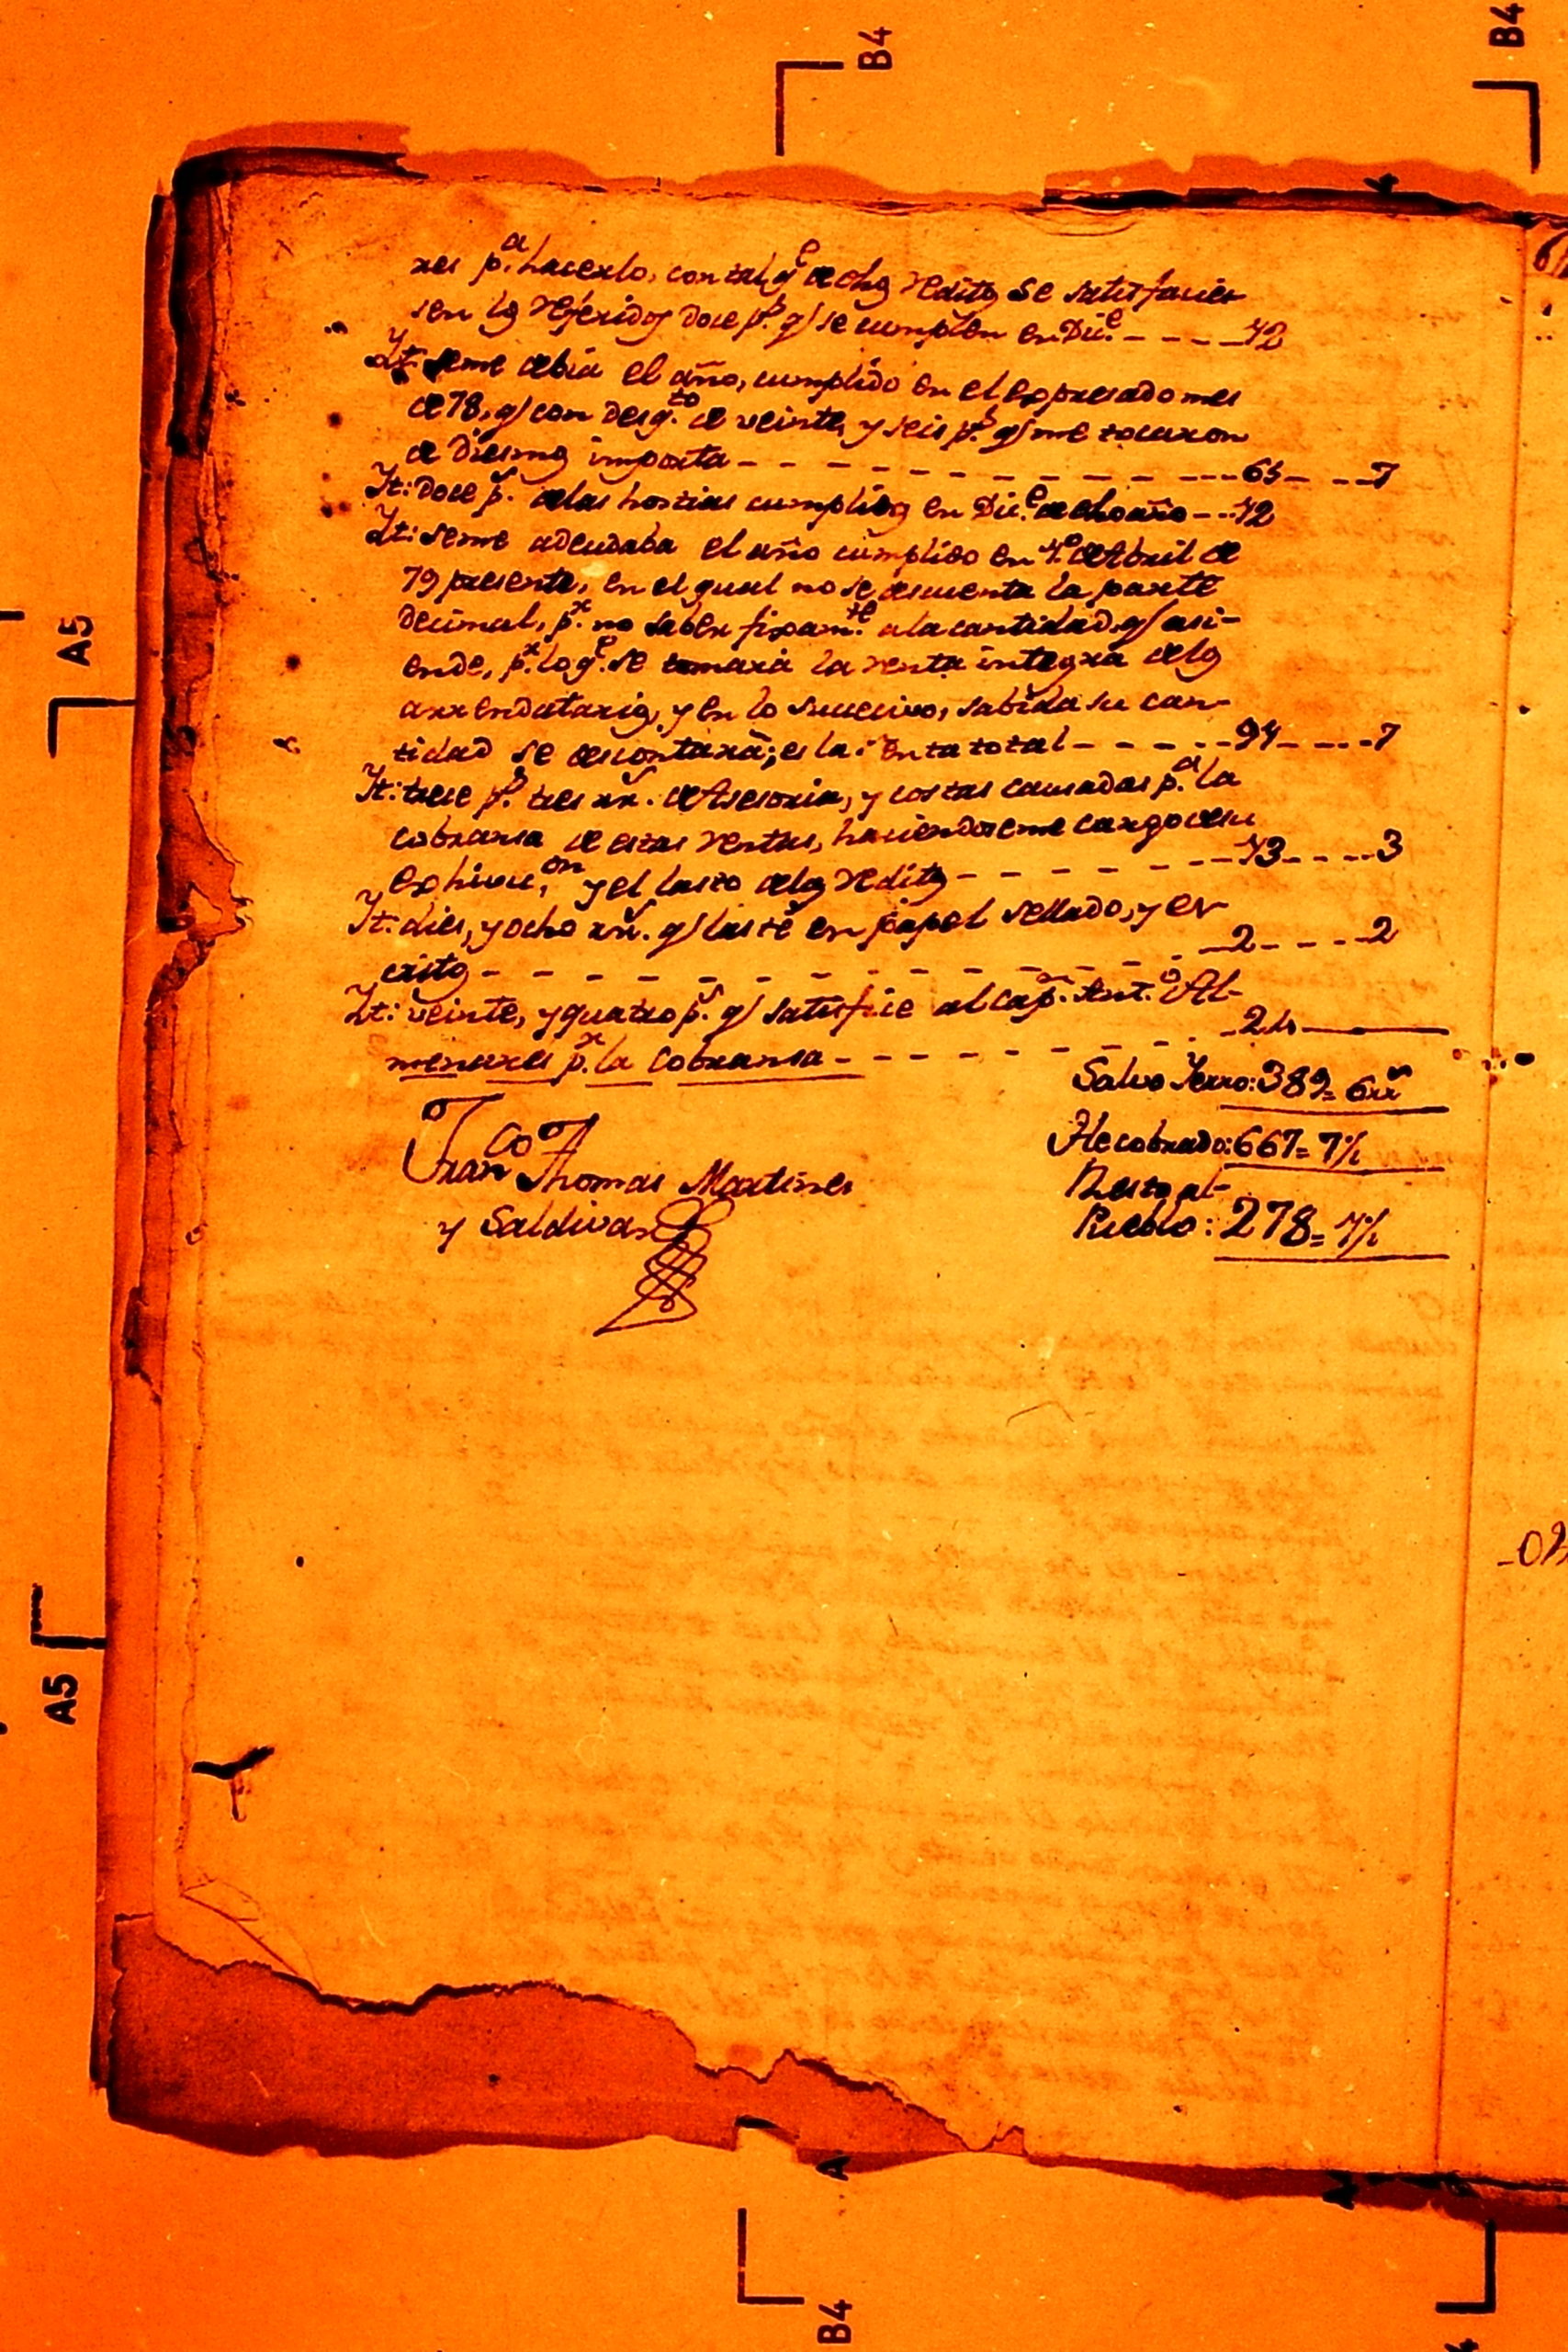 res p.ª hacerlo, con tal q.e de dhos reditos se satisfacies
sen los referidos doce p.s q/ se cumplen en Dic.e - - - - 12
It: seme debia el año, cumplido en el expresado mes
de 78, q/ con desq.to de veinte, y seis p.s q/ me tocaron
de Diesmos importa - - - - - - - - - - - - 65 - - - 7
It: doce p.s de las hostias cumplidos en Dic.e de dho año - - 12
It: seme adeudaba el año cumplido en 1.º de Abril de
79 presente, en el qual no se descuenta la parte
decimal, p.r no saber fixam.te a la cantidad, q/ asi-
ende, p.r lo q.e se tomará la renta integra de los
arrendatarios, y en lo succecivo, sabida su can-
tidad se descontará; es la renta total - - - - - 94 - - - - 7
It: trese p.s tres rr.s de Asesoria, y costas causadas p.ª la
cobransa de estas rentas, haciendoseme cargo de su
exhivic,on y el lasto de los reditos - - - - - - - 13 - - - - 3
It: dies, y ocho rr.s q/ lasté en papel sellado, y es-
critos - - - - - - - - - - - - - 2 - - - - 2
It: veinte, y quatro p.s q/ satisfice al Cap.n Ant.º Al-
menares p.r la cobransa - - - - - - - - 24
Salvo Yerro: 389 = 6 rr.s
He cobrado: 667 = 7 r/.
Resta el
Pueblo: 278 = 1 r/.
Fran.co Thomas Martines
y Saldivar
A5
A5
B4
B4
B4